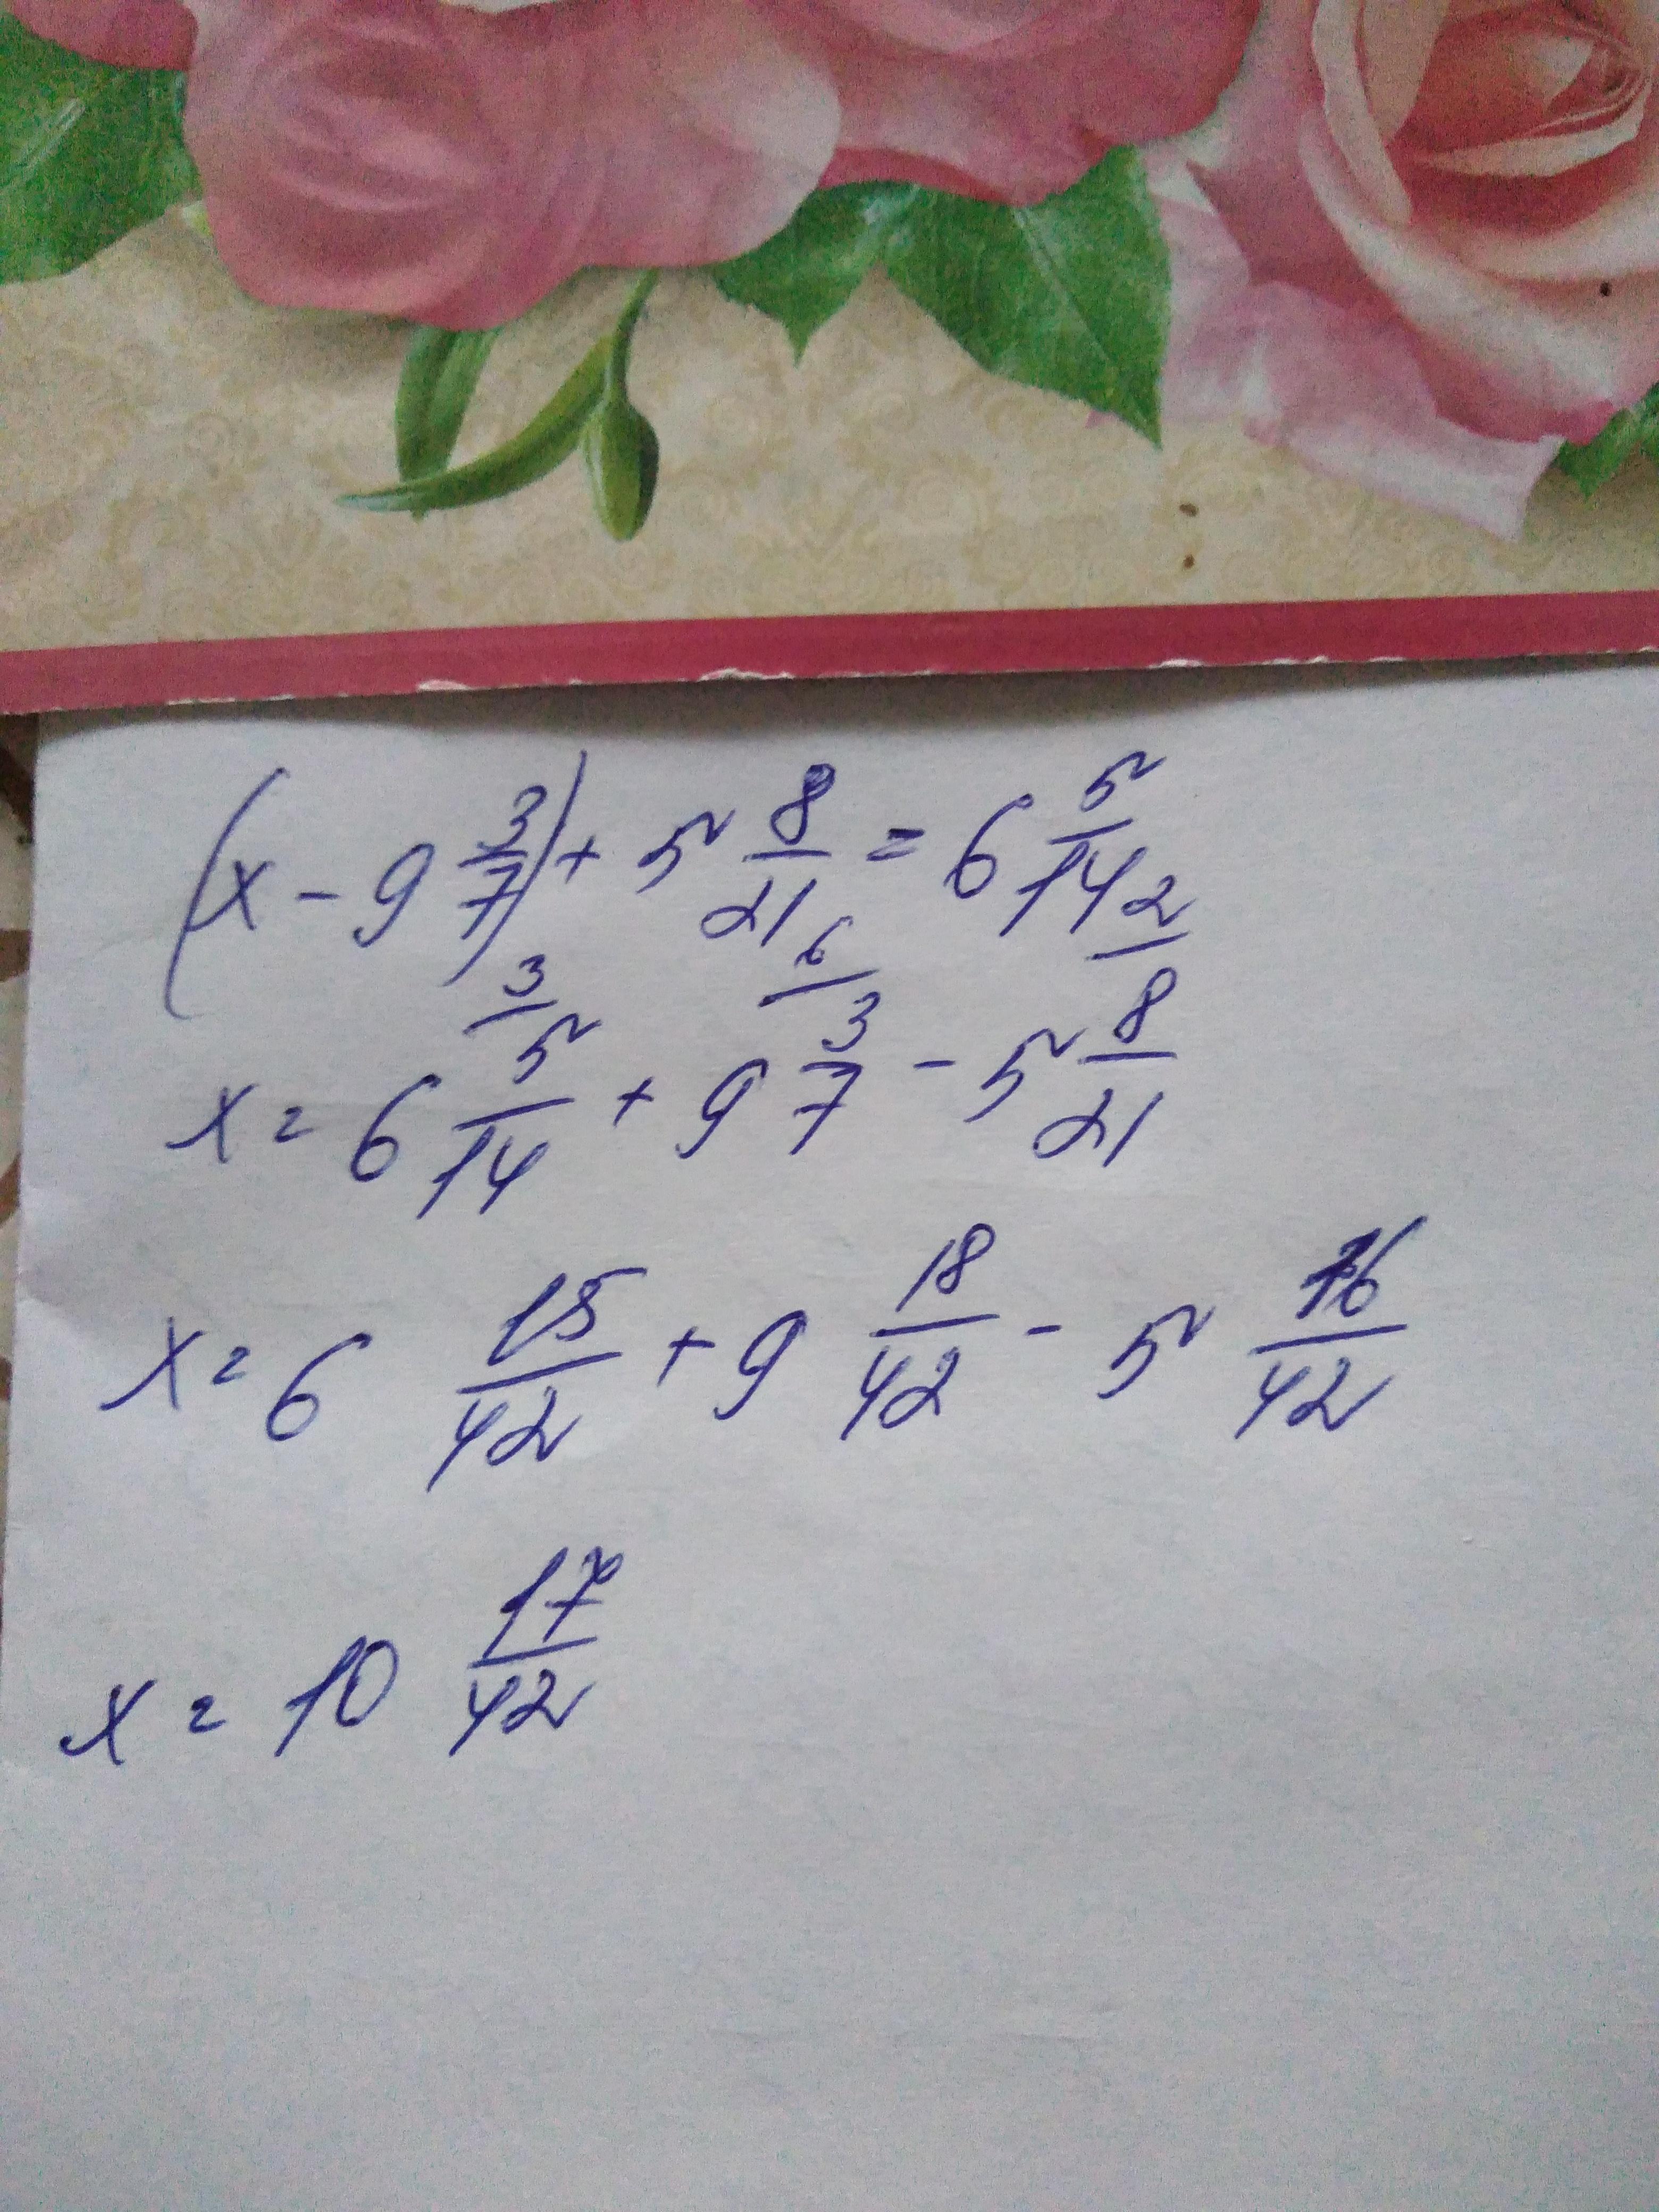 (x - 9 3/7) + 5 8/21 = 6 5/14
3 6 2
x = 6 5/14 + 9 3/7 - 5 8/21
x = 6 15/42 + 9 18/42 - 5 16/42
x = 10 17/42